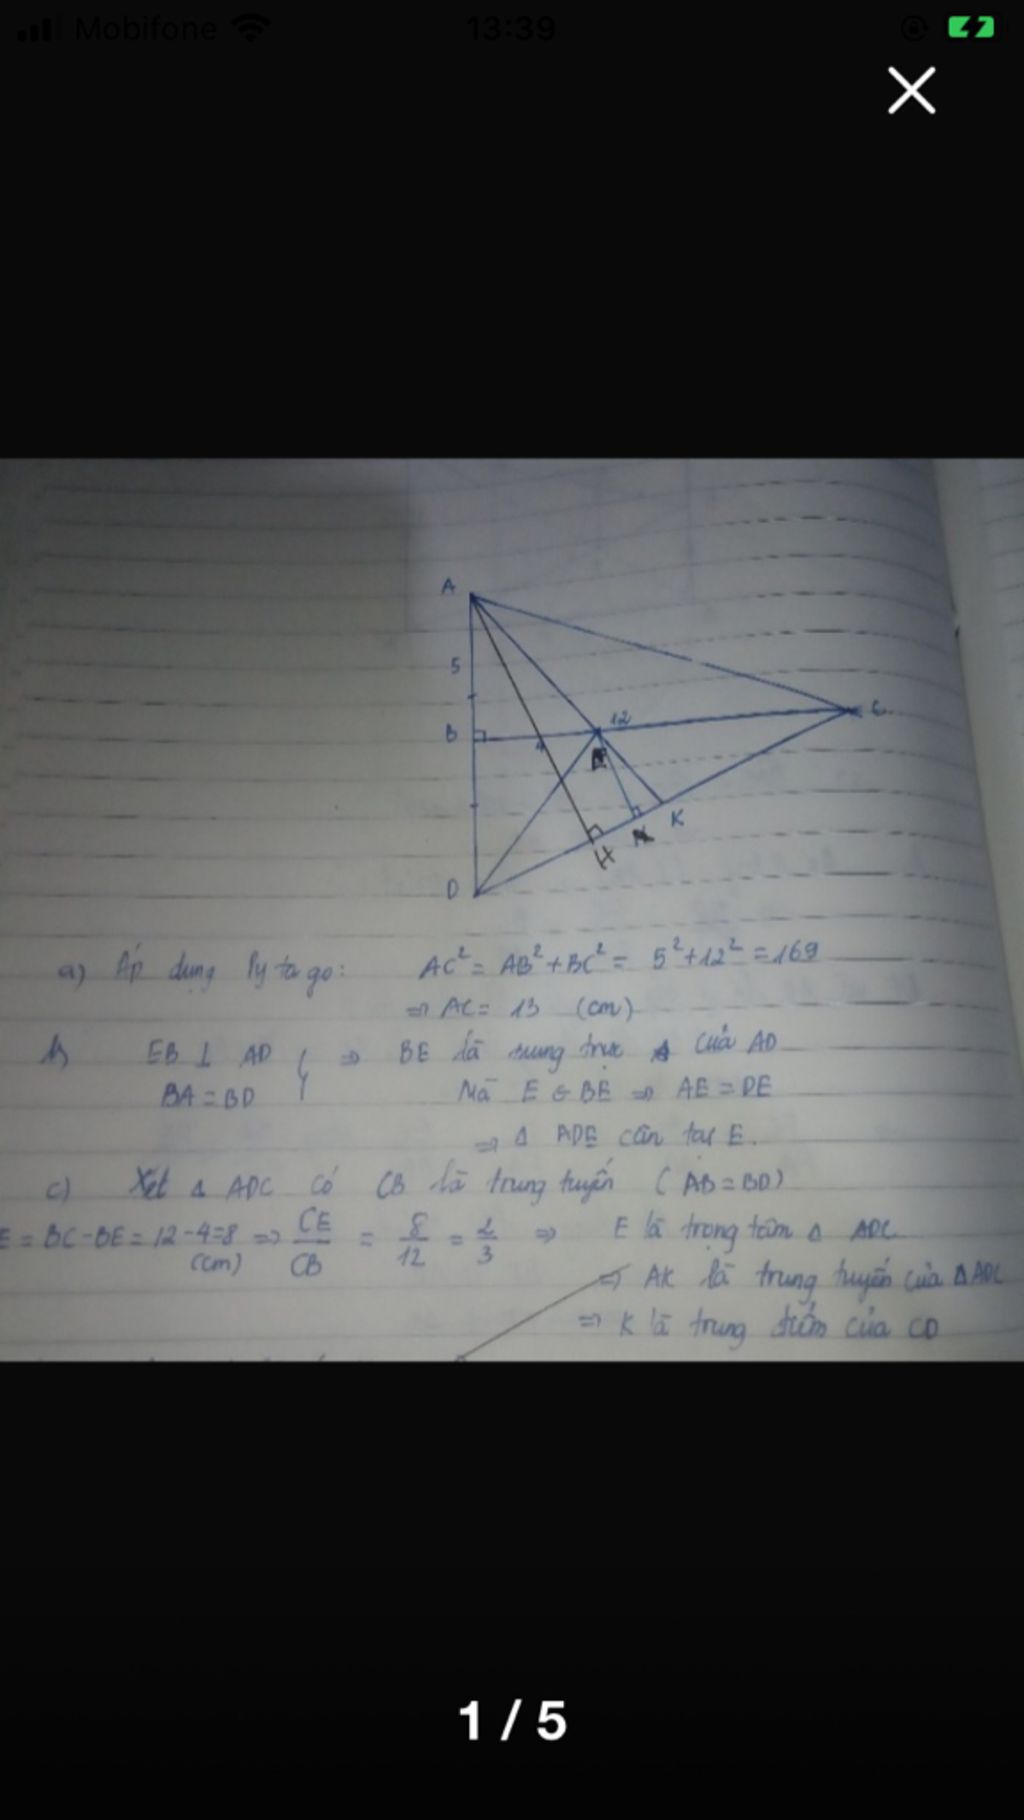 Mobifone 13:39
A
5
B
12
C
4
E
K
H
D
a) Áp dụng Pytago: AC² = AB² + BC² = 5² + 12² = 169
⇒ AC = 13 (cm)
b) EB ⊥ AD } ⇒ BE là trung trực của AD
BA = BD Mà E ∈ BE ⇒ AE = DE
⇒ Δ ADE cân tại E.
c) Xét Δ ADC có CB là trung tuyến (AB = BD)
E = BC - BE = 12 - 4 = 8 (cm) ⇒ CE/CB = 8/12 = 2/3 ⇒ E là trọng tâm Δ ADC
⇒ AK là trung tuyến của ΔADC
⇒ K là trung điểm của CD
1 / 5